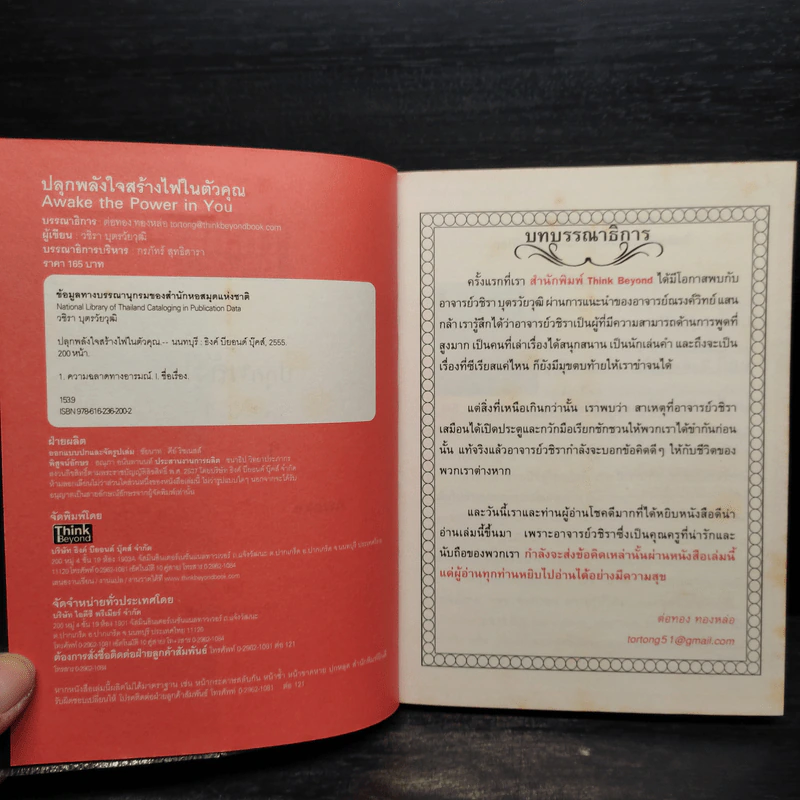 ปลุกพลังใจสร้างไฟในตัวคุณ
Awake the Power in You
บรรณาธิการ : ต่อทอง ทองหล่อ tortong@thinkbeyondbook.com
ผู้เขียน : วชิรา บุตรวัยวุฒิ
บรรณาธิการบริหาร : กรภัทร์ สุทธิดารา
ราคา 165 บาท
ข้อมูลทางบรรณานุกรมของสำนักหอสมุดแห่งชาติ
National Library of Thailand Cataloging in Publication Data
วชิรา บุตรวัยวุฒิ
ปลุกพลังใจสร้างไฟในตัวคุณ.-- นนทบุรี : ธิงค์ บียอนด์ บุ๊คส์, 2555.
200 หน้า.
1. ความฉลาดทางอารมณ์. I. ชื่อเรื่อง.
153.9
ISBN 978-616-236-200-2
ฝ่ายผลิต
ออกแบบปกและจัดรูปเล่ม
พิสูจน์อักษร ประสานงานการผลิต
จัดพิมพ์โดย
Think
Beyond
บริษัท ธิงค์ บียอนด์ บุ๊คส์ จำกัด
จัดจำหน่ายทั่วประเทศโดย
บริษัท ไอดีซี พรีเมียร์ จำกัด
ต้องการสั่งซื้อติดต่อฝ่ายลูกค้าสัมพันธ์ โทรศัพท์ 0-2962-1081 ต่อ 121
โทรสาร 0-2962-1084
บทบรรณาธิการ
ครั้งแรกที่เรา สำนักพิมพ์ Think Beyond ได้มีโอกาสพบกับ
อาจารย์วชิรา บุตรวัยวุฒิ ผ่านการแนะนำของอาจารย์ณรงค์วิทย์ แสน
กล้า เรารู้สึกได้ว่าอาจารย์วชิราเป็นผู้ที่มีความสามารถด้านการพูดที่
สูงมาก เป็นคนที่เล่าเรื่องได้สนุกสนาน เป็นนักเล่นคำ และถึงจะเป็น
เรื่องที่ซีเรียสแค่ไหน ก็ยังมีมุขตบท้ายให้เราขำจนได้
แต่สิ่งที่เหนือเกินกว่านั้น เราพบว่า สาเหตุที่อาจารย์วชิรา
เสมือนได้เปิดประตูและกวักมือเรียกชักชวนให้พวกเราได้ขำกันก่อน
นั้น แท้จริงแล้วอาจารย์วชิรากำลังจะบอกข้อคิดดีๆ ให้กับชีวิตของ
พวกเราต่างหาก
และวันนี้เราและท่านผู้อ่านโชคดีมากที่ได้หยิบหนังสือดีน่า
อ่านเล่มนี้ขึ้นมา เพราะอาจารย์วชิราซึ่งเป็นคุณครูที่น่ารักและ
นับถือของพวกเรา กำลังจะส่งข้อคิดเหล่านั้นผ่านหนังสือเล่มนี้
แด่ผู้อ่านทุกท่านหยิบไปอ่านได้อย่างมีความสุข
ต่อทอง ทองหล่อ
tortong51@gmail.com